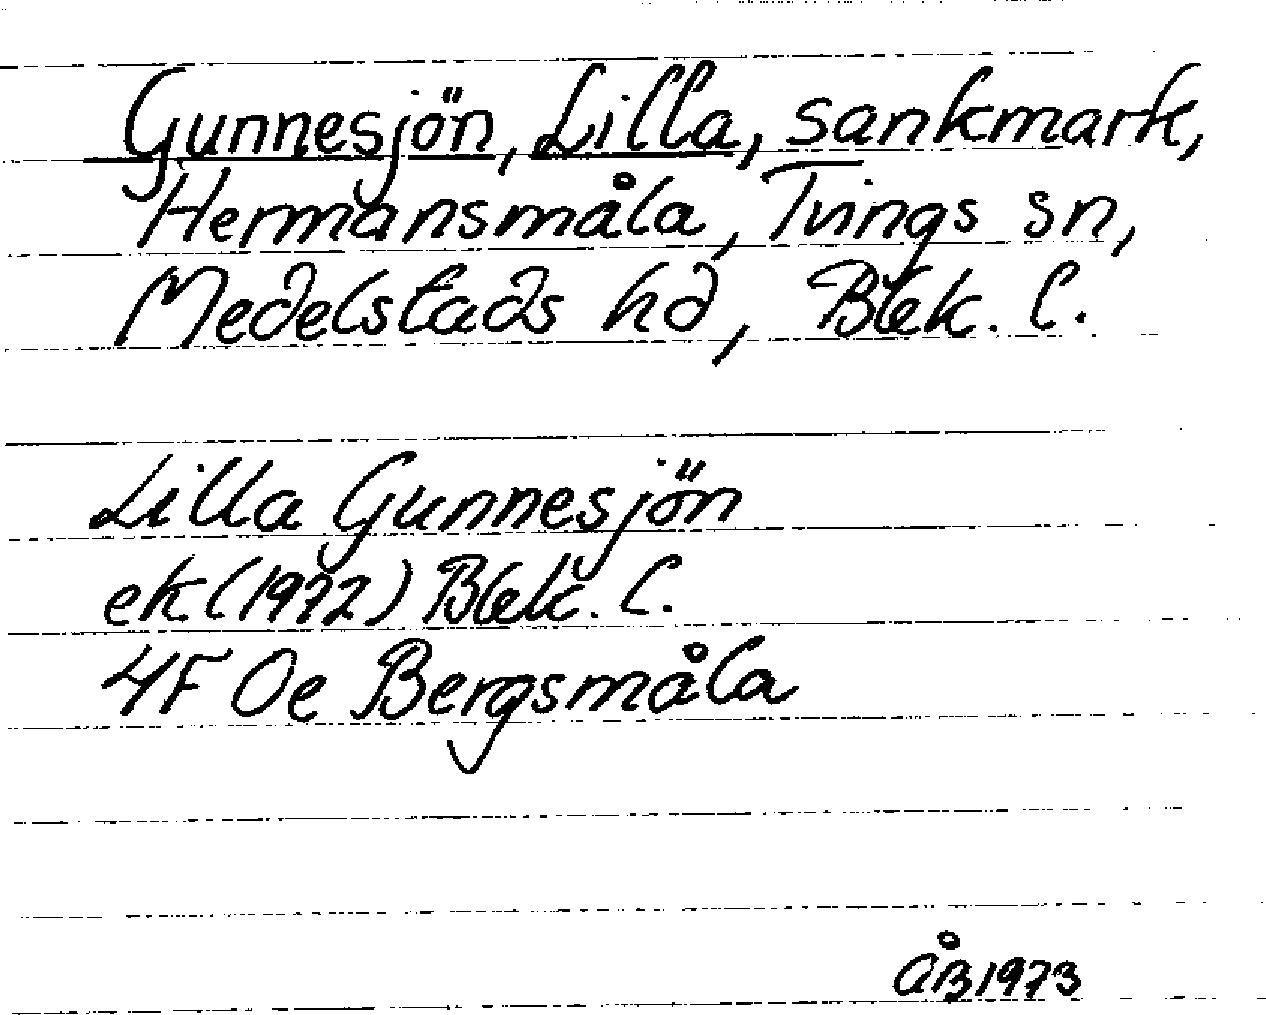 Gunnesjön, Lilla, sankmark,
Hermansmåla, Tvings sn,
Medelstads hd, Blek. l.
Lilla Gunnesjön
ek (1972) Blek. l.
4F Oe Bergsmåla
ÅB 1973